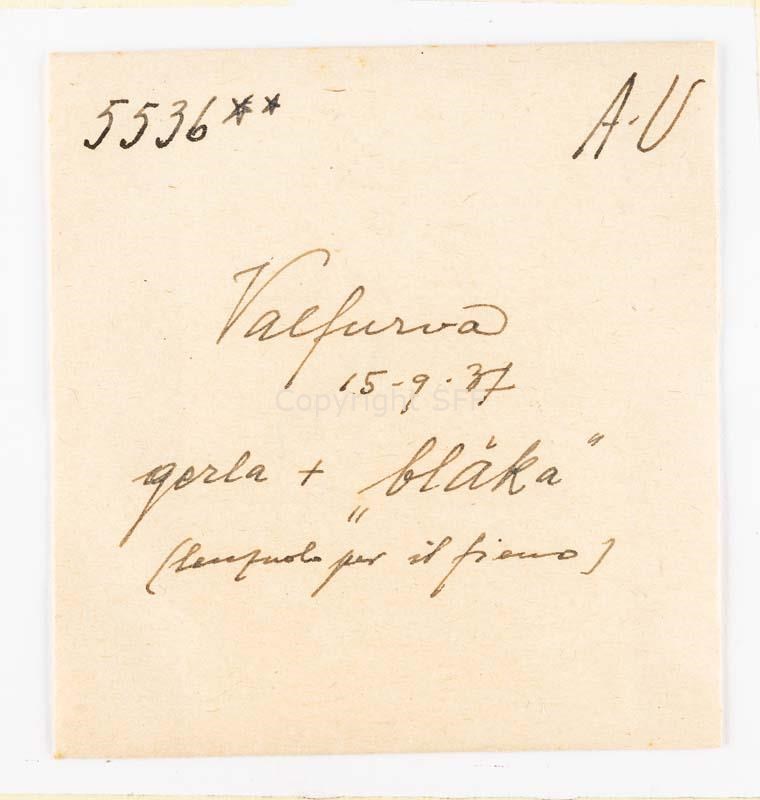 5536** A·V
Valfurva
15-9-37
Copyright SFF
gerla + „bláka"
(lenzuolo per il fieno)